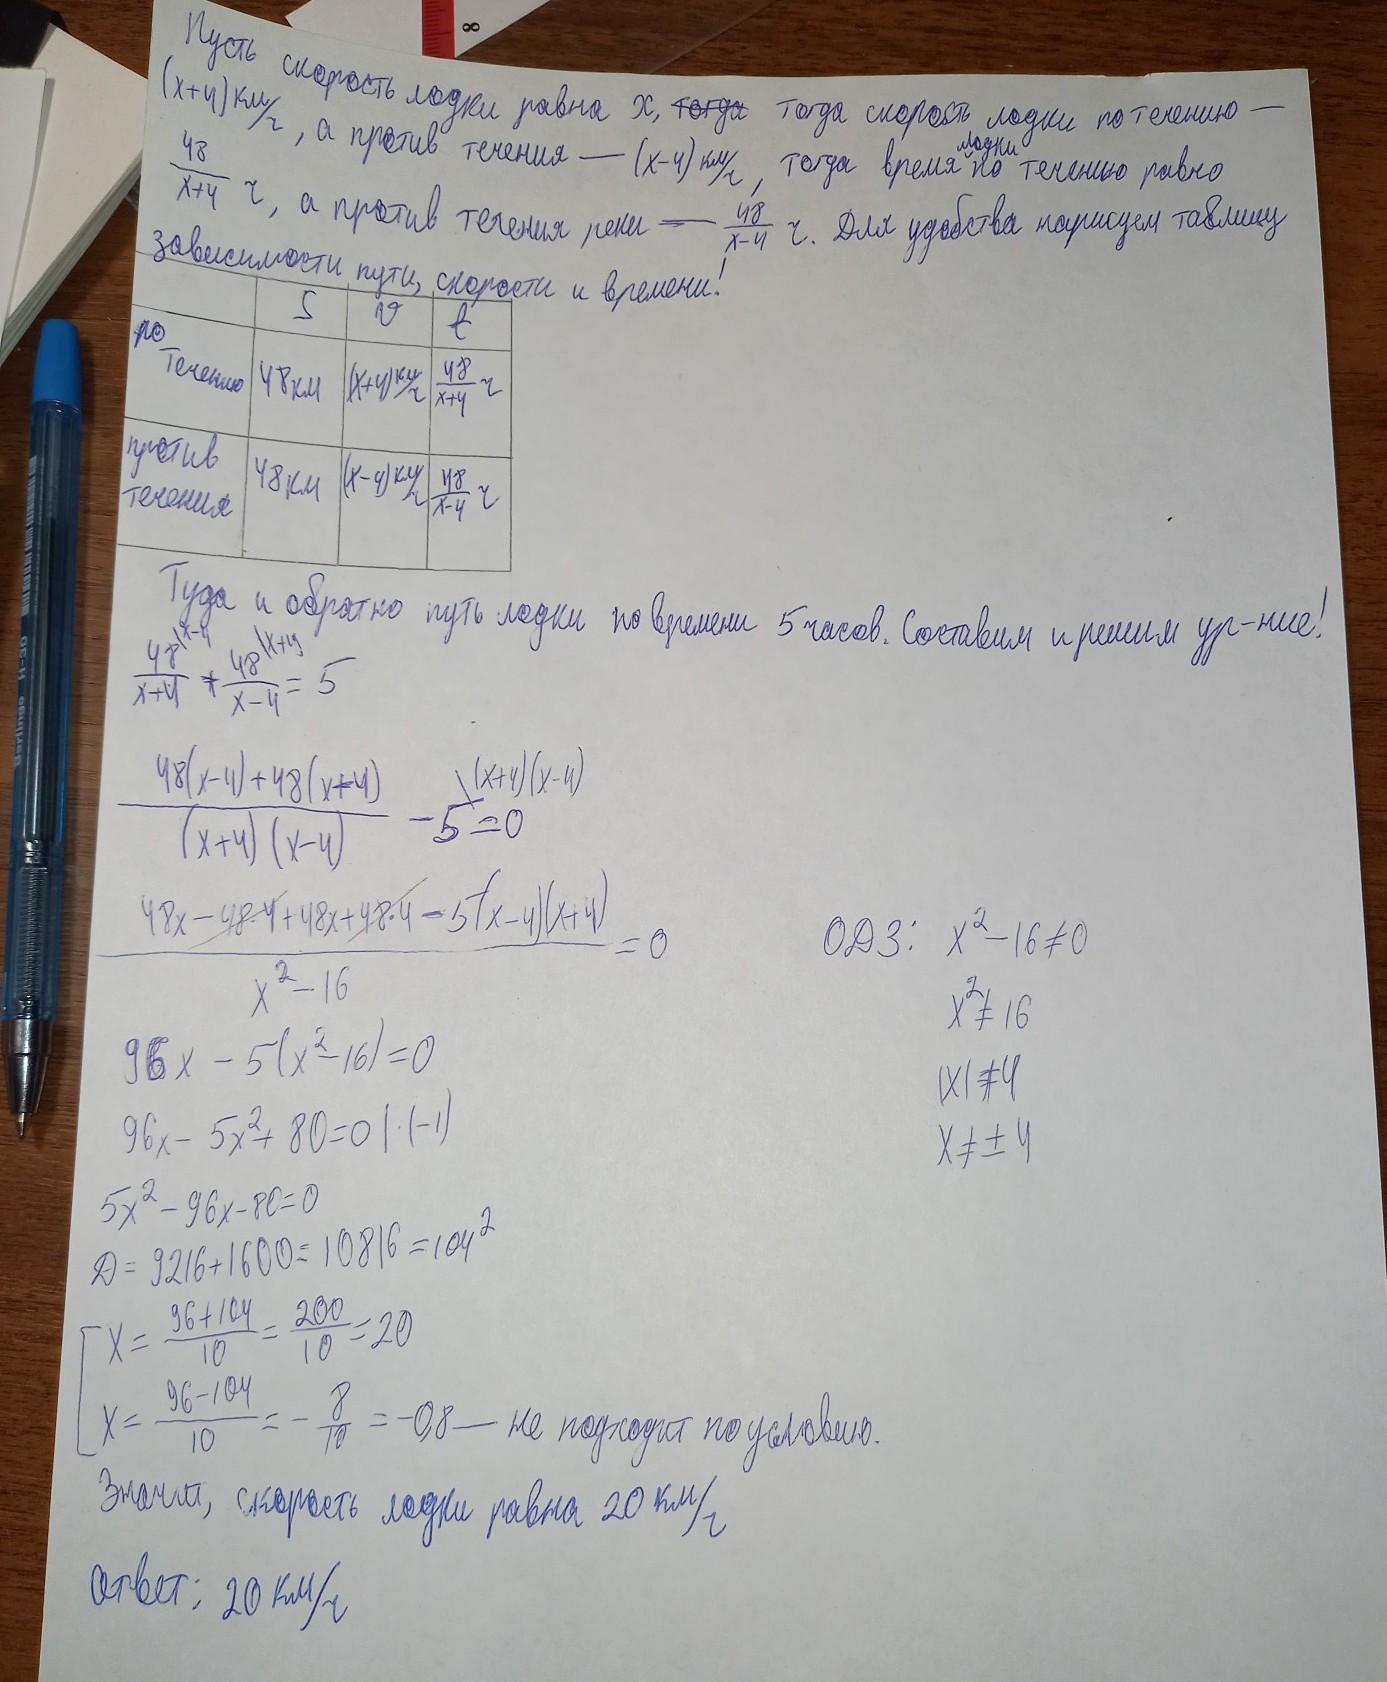 8
Пусть скорость лодки равна x, тогда тогда скорость лодки по течению —
(x+4) км/ч, а против течения — (x-4) км/ч, тогда время лодки по течению равно
48/(x+4) ч, а против течения реки — 48/(x-4) ч. Для удобства нарисуем таблицу
зависимости пути, скорости и времени!
S v t
по течению 48 км (x+4) км/ч 48/(x+4) ч
против течения 48 км (x-4) км/ч 48/(x-4) ч
Туда и обратно путь лодки по времени 5 часов. Составим и решим ур-ние!
48\x-4/(x+4) + 48\x+4/(x-4) = 5
(48(x-4)+48(x+4))/((x+4)(x-4)) - 5\(x+4)(x-4) = 0
(48x-48·4+48x+48·4-5(x-4)(x+4))/(x²-16) = 0
ОДЗ: x²-16≠0
x²≠16
|x|≠4
x≠±4
96x - 5(x²-16)=0
96x - 5x²+80=0 |·(-1)
5x²-96x-80=0
Д = 9216+1600=10816=104²
x = (96+104)/10 = 200/10 = 20
x = (96-104)/10 = -8/10 = -0,8 — не подходит по условию.
Значит, скорость лодки равна 20 км/ч
Ответ: 20 км/ч